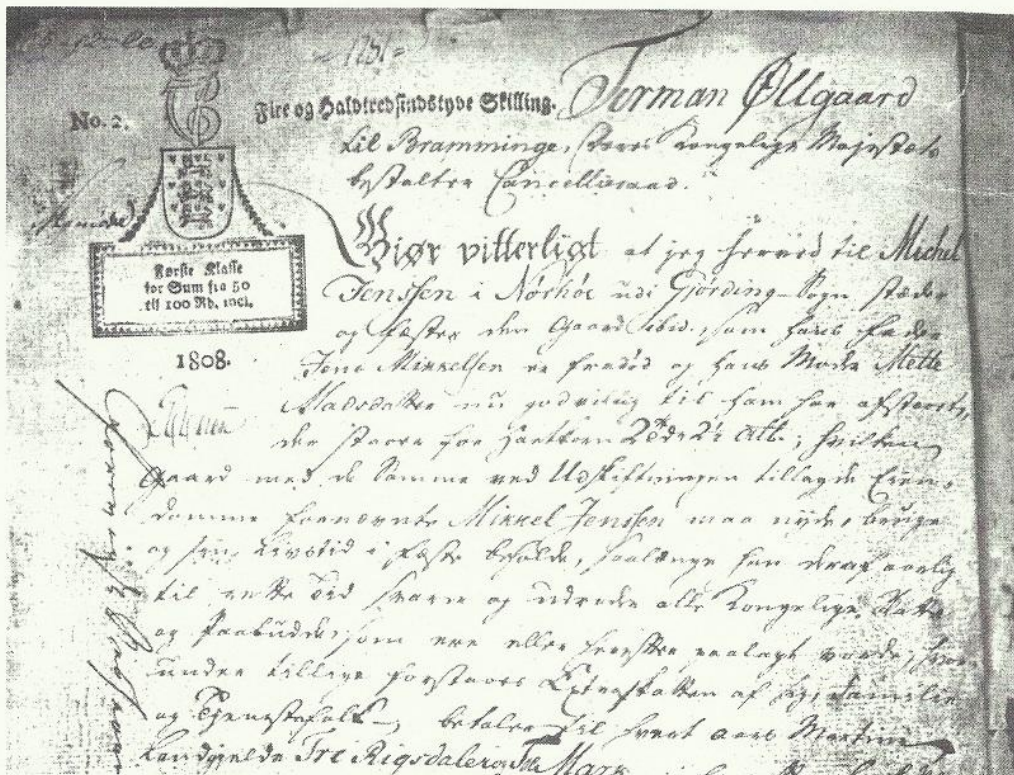 No. 2.
1751
Fire og Halvtredsindstyve Skilling.
Terman Øllgaard
til Bramminge, Deres Kongelige Majestæts
bestalter Cancelliraad.
Giør vitterligt at jeg herved til Michel
Jenssen i Nørhóe udi Giørding-Sogn stæder
og fæster den Gaard ibid., som hans Fader
Jens Mikkelsen er fradød og hans Moder Mette
Madsdatter nu godvillig til ham har afstaaet,
der staaer for Hartkorn
Alb.; hvilken
Gaard med de Samme ved Udskiftningen tillagde Eien-
domme fornævnte Mikkel Jenssen maa nyde, bruge
og sin Livstid i Fæste beholde, saalænge han deraf aarlig
til rette Tid svarer og udreder alle Kongelige Skatter
og Paabudde, som ere eller herefter paalagt vorde, hvor-
under tillige forstaaes Extraskatten af sig, Familie
og Tjenestefolk, betaler til hvert Aars Martini
Landgielde Tre Rigsdaler
Mark
Første Klasse
for Sum fra 50
til 100 Rd. incl.
1808.